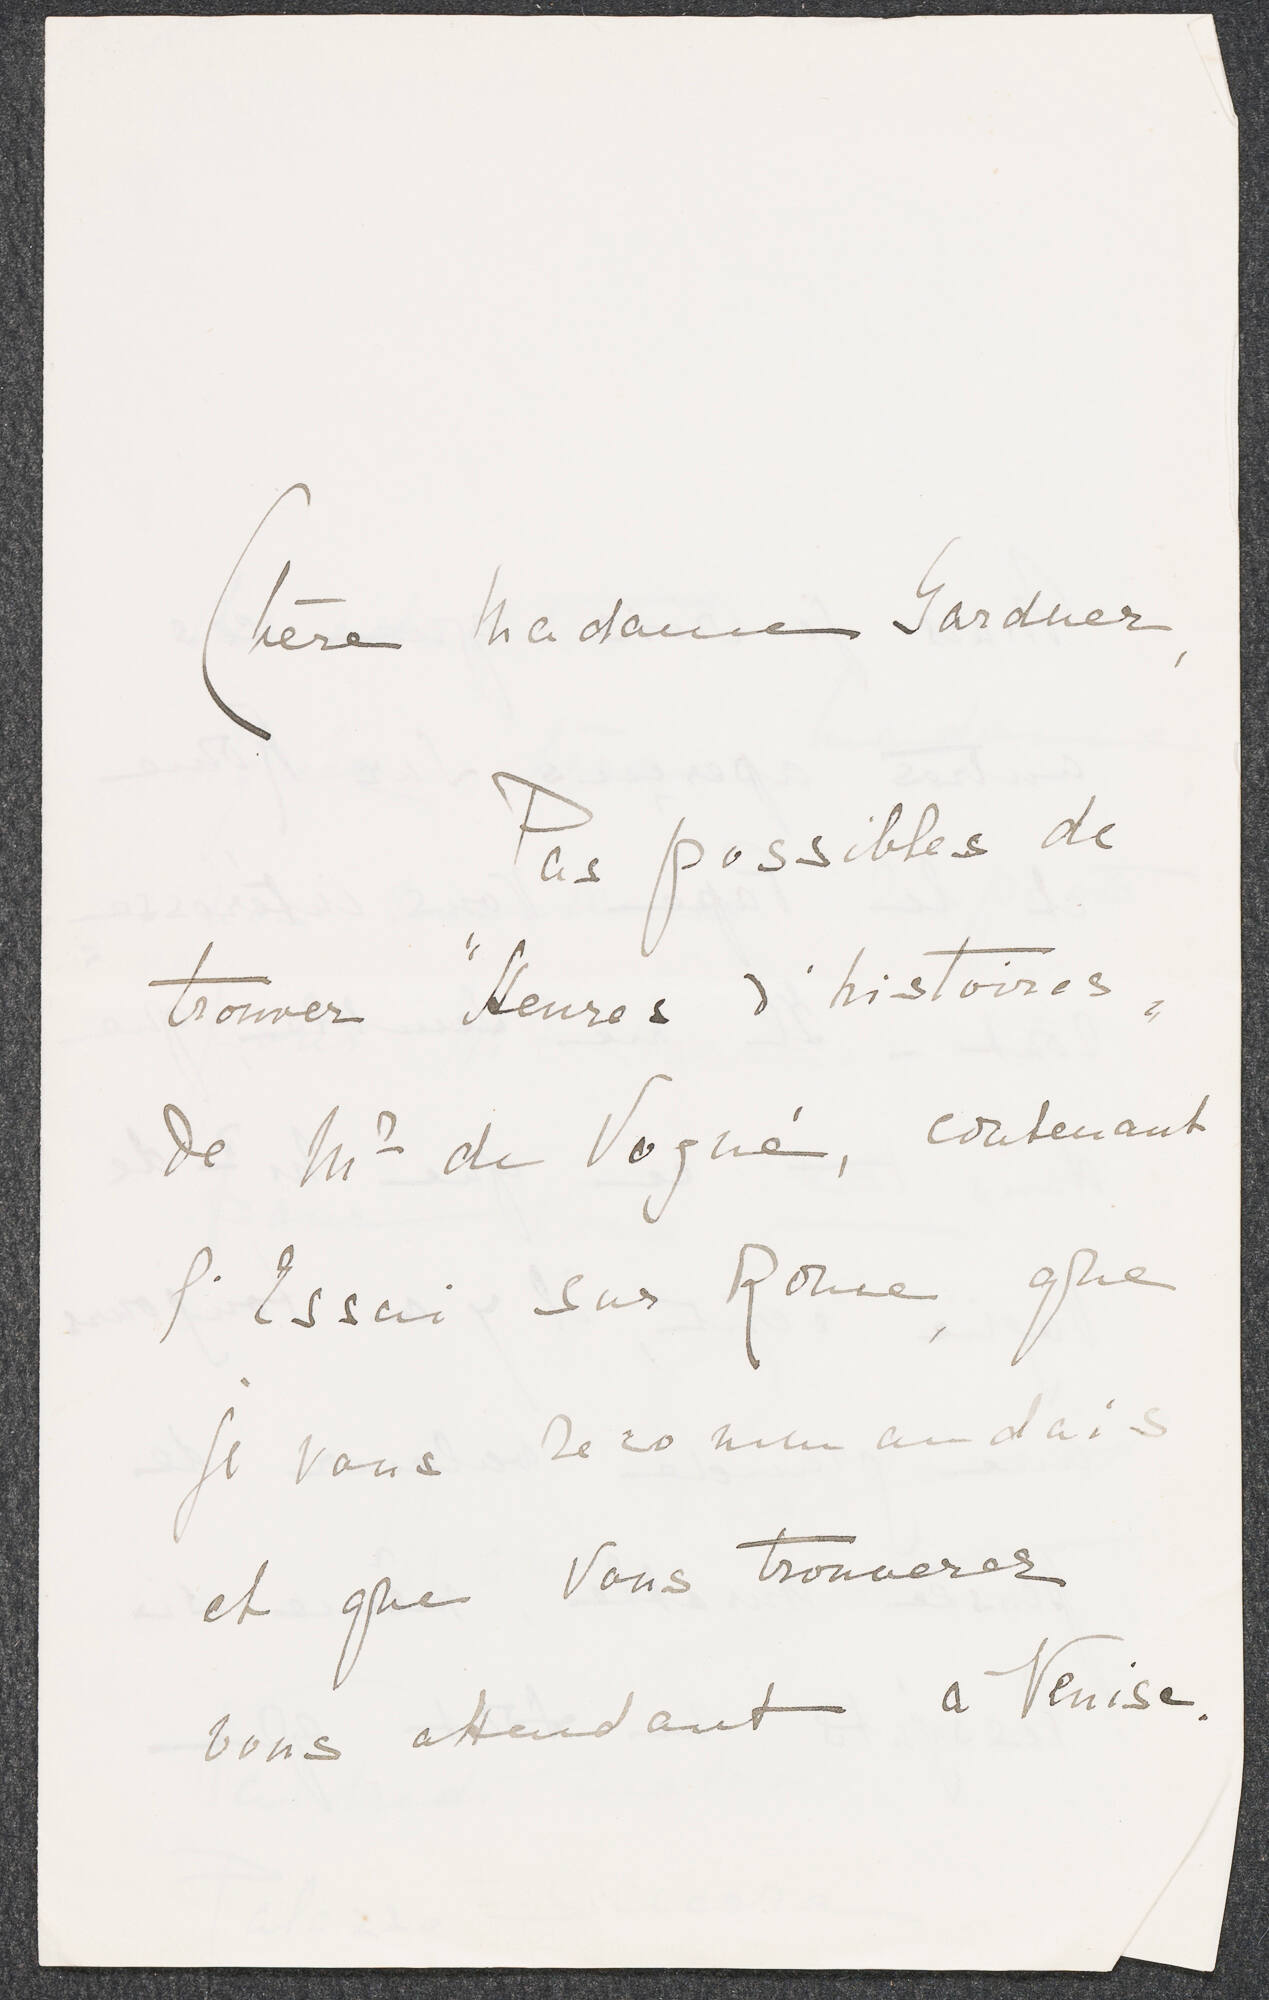 Chère Madame Gardner,
Pas possibles de
trouver "Heures d'histoires"
de Mr de Vogué, contenant
l'Essai sur Rome, que
je vous recommandais
et que vous trouverez
vous attendant a Venise.